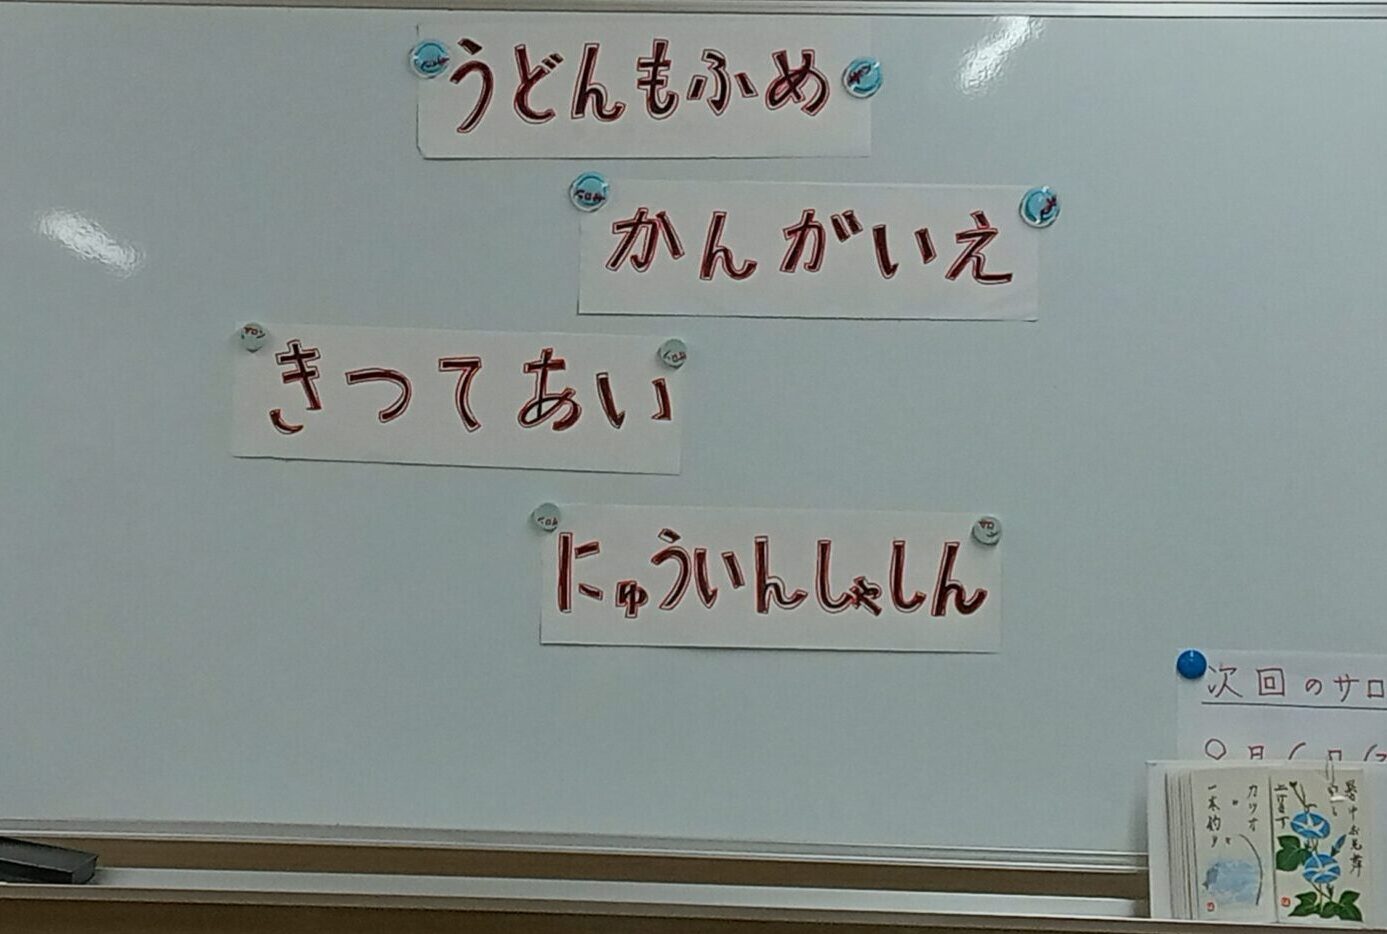 うどんもふめ
かんがいえ
きつてあい
にゅういんしゃしん
次回のサロ
カツオの
一本釣り
暑中お見舞
申し
上げます